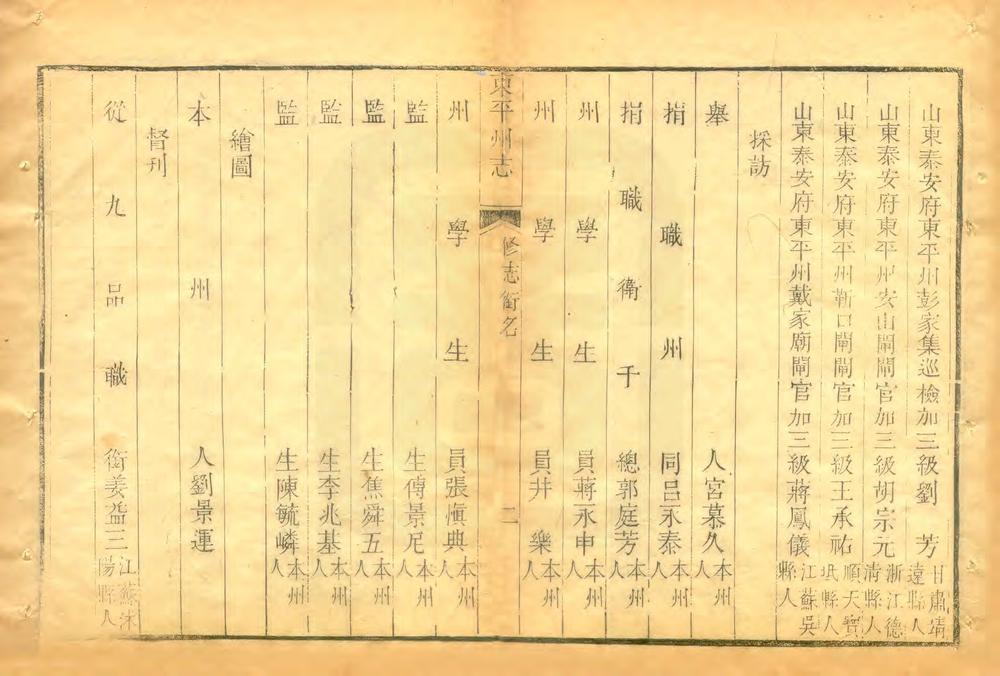 山東泰安府東平州彭家集巡檢加三級劉　芳甘肅靖遠縣人
山東泰安府東平州安山閘閘官加三級胡宗元浙江德清縣人
山東泰安府東平州靳口閘閘官加三級王承祐順天寶坻縣人
山東泰安府東平州戴家廟閘官加三級蔣鳳儀江蘇吳縣人
採訪
舉人宮慕久本州人
捐職州同呂永泰本州人
捐職衛千總郭庭芳本州人
州學生員蔣永申本州人
州學生員井　樂本州人
東平州志　修志銜名　二
州學生員張慎典本州人
監生傅景尼本州人
監生焦舜五本州人
監生李兆基本州人
監生陳毓嶙本州人
繪圖
本州人劉景運
督刊
從九品職銜姜益三江蘇沭陽縣人